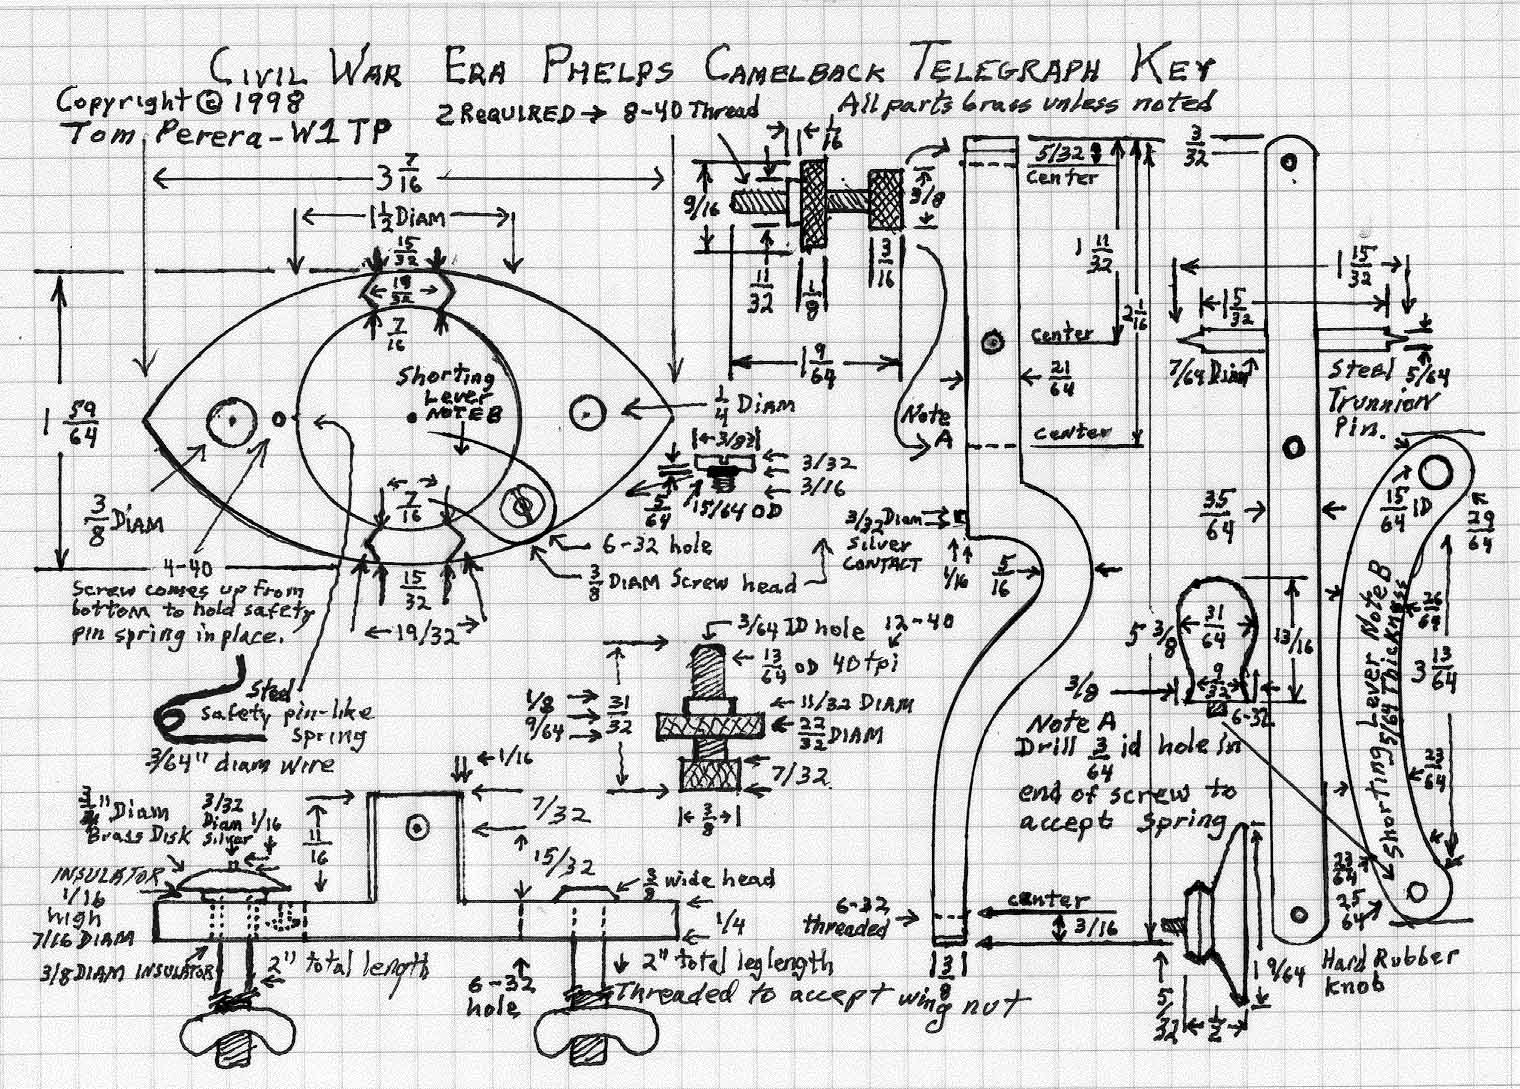 CIVIL WAR ERA PHELPS CAMELBACK TELEGRAPH KEY
Copyright © 1998
Tom Perera-W1TP
2 REQUIRED → 8-40 Thread
All parts brass unless noted
3 7/16
1 1/2 Diam
15/32
19/32
7/16
1 59/64
Shorting
Lever
NOTE B
1/4 Diam
3/8 Diam
7/16
15/32
19/32
4-40
Screw comes up from
bottom to hold safety
pin spring in place.
6-32 hole
3/8 Diam Screw head
Steel
safety pin-like
spring
3/64" diam wire
1/16
9/16
3/8
11/32
1/8
3/16
1 9/64
3/82
3/32
3/16
5/64
15/64 OD
3/64 ID hole 12-40
13/64 OD 40 tpi
1/8
9/64
31/32
11/32 DIAM
22/32 DIAM
7/32
3/8
5/32
center
1 11/32
2 1/16
center
21/64
Note
A
center
3/32 Diam
silver
CONTACT
1/16
5/16
5 3/8
Note A
Drill 3/64 id hole in
end of screw to
accept spring
6-32
threaded
center
3/16
3/8
3/32
1 15/32
1 5/32
7/64 Diam
Steel
Trunnion
Pin.
5/64
35/64
15/64 ID
29/64
31/64
13/16
9/32
3/8
6-32
Shorting Lever Note B
5/64 Thickness
26/64
3 13/64
23/64
23/64
25/64
5/32
1/2
1 9/64
Hard Rubber
knob
" Diam
Brass Disk
3/32
Diam
silver
1/16
11/16
1/16
7/32
15/32
INSULATOR
1/16
high
7/16 DIAM
3/8 DIAM INSULATOR
2" total length
3/8 wide head
1/4
6-32
hole
2" total leglength
Threaded to accept wing nut